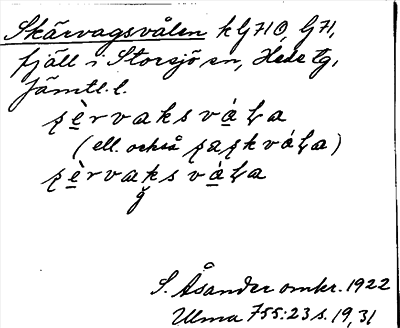 Skärvagsvålen k G710, G71,
fjäll i Storsjö sn, Hede tg,
Jämtl. l.
ʂèrvaksváɽa
(ell. också ʂaʂkváɽa)
ʂèrvaksváɽa
g
S. Åsander omkr. 1922
Ulma 755:23 s. 19, 31